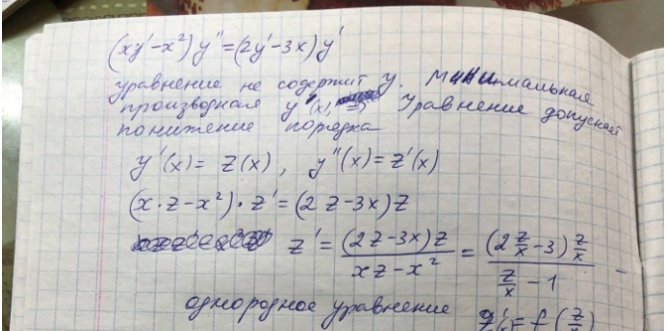 (xy'-x²)y''=(2y'-3x)y'
уравнение не содержит y. Минимальная
производная y'(x). Уравнение допускает
понижение порядка
y'(x)= z(x), y''(x)=z'(x)
(x·z-x²)·z'=(2z-3x)z
z' = (2z-3x)z / (xz-x²) = (2 z/x -3) z/x / (z/x - 1) -
однородное уравнение = f(z/x